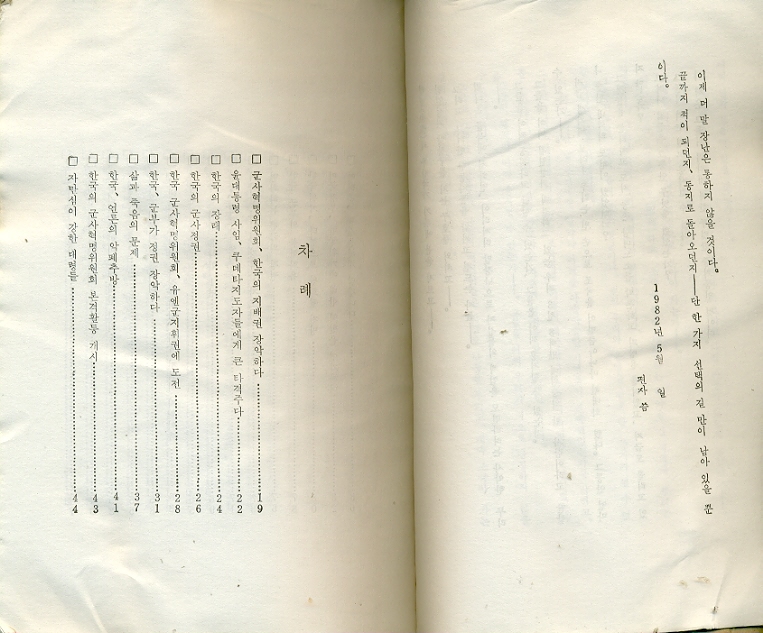 이제 더 말 장난은 통하지 않을 것이다.
끝까지 적이 되던지, 동지로 돌아오던지——단 한가지 선택의 길 만이 남아 있을 뿐
이다.
1982년 5월 일
편자 씀
차 례
□ 군사혁명위원회, 한국의 지배권 장악하다……19
□ 윤대통령 사임, 쿠데타지도자들에게 큰 타격주다……22
□ 한국의 장래……24
□ 한국의 군사정권……26
□ 한국 군사혁명위원회, 유엔군지휘권에 도전……28
□ 한국, 군부가 정권 장악하다……31
□ 삶과 죽음의 문제……37
□ 한국, 언론의 악폐추방……41
□ 한국의 군사혁명위원회 본격활동 개시……43
□ 자만심이 강한 대령들……44